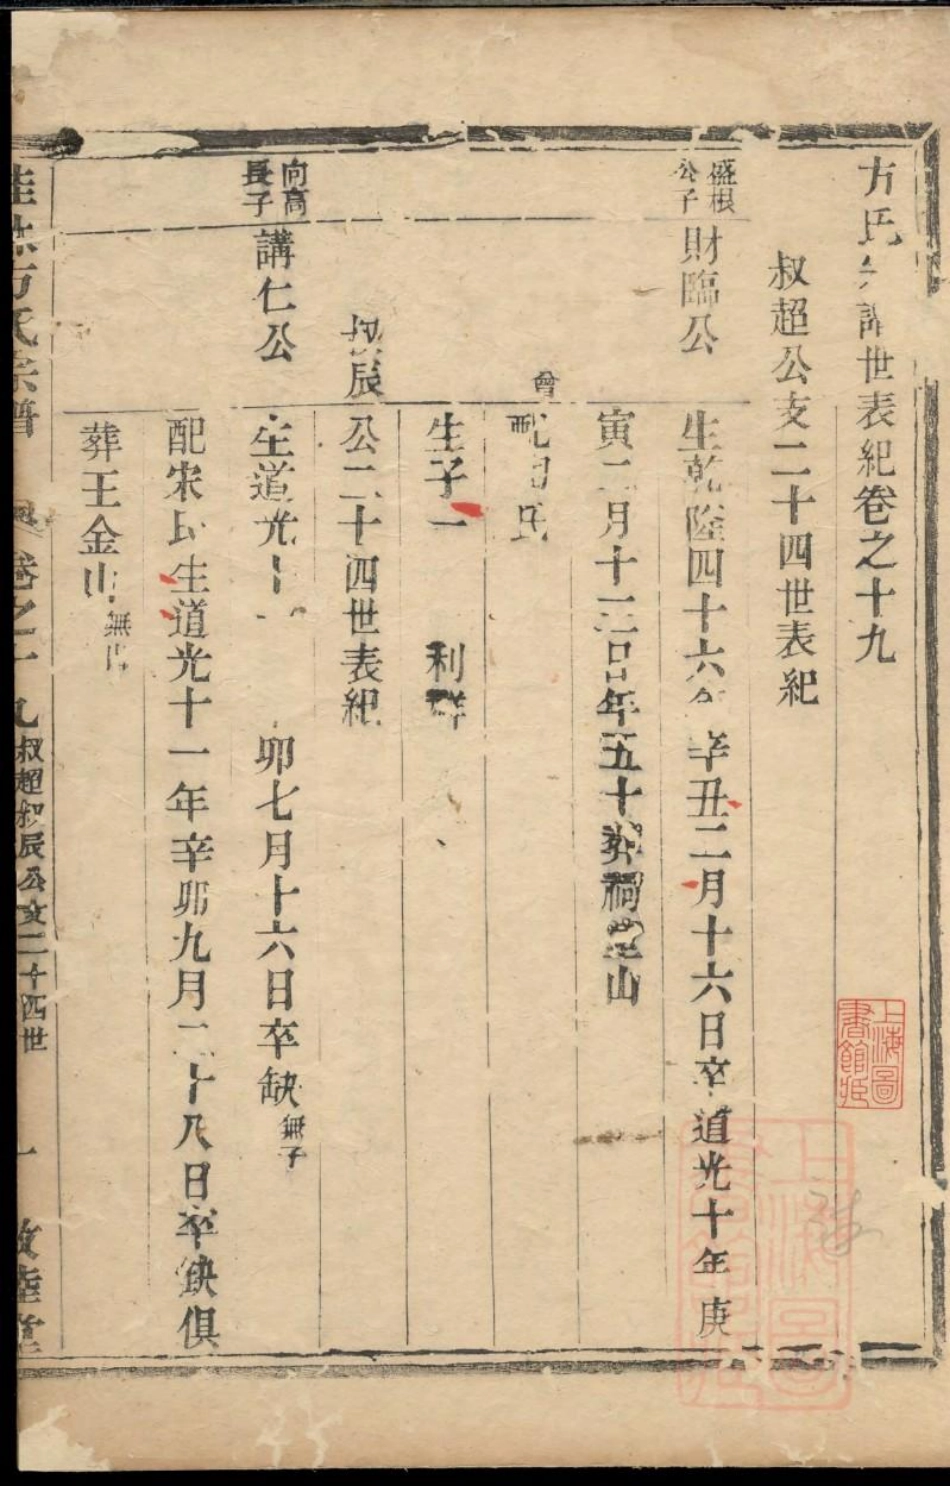 方氏宗譜世表紀卷之十九
叔超公支二十四世表紀
盛根
公子
財臨公
生乾隆四十六年辛丑二月十六日卒道光十年庚
寅二月十二日年五十葬祠堂山
曾
配氏
生子一 利群
叔辰
公二十四世表紀
向高
長子
講仁公
生道光十卯七月十六日卒缺無子
配宋氏生道光十一年辛卯九月二十八日卒缺俱
葬王金山無
方氏宗譜 卷之十九 叔超叔辰公支二十四世 一 敦睦堂
上海圖
書館藏
上海圖
書館藏